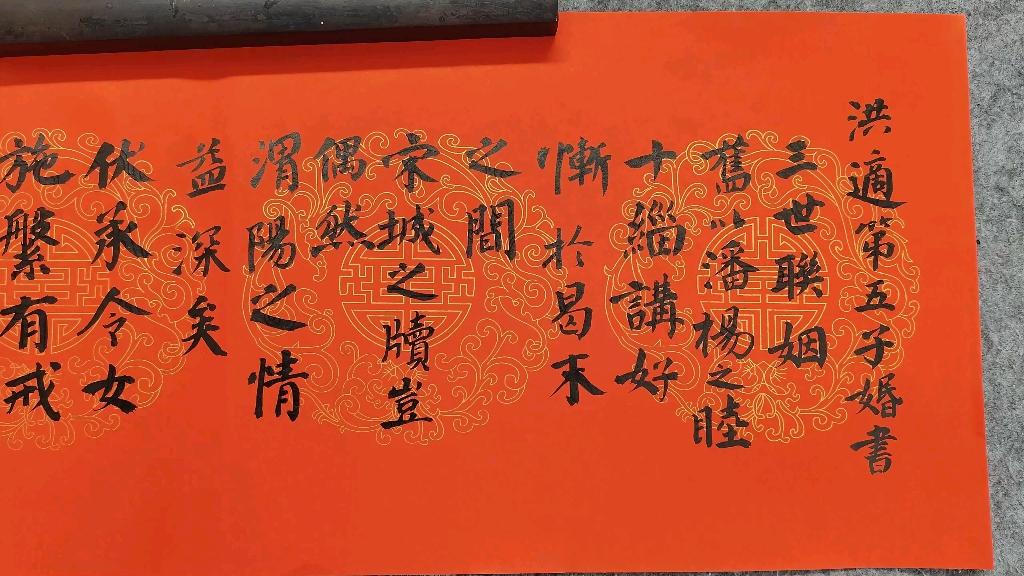 洪適第五子婚書
三世聯姻
舊以潘楊之睦
十緇講好
慚於曷末
之間
宋城之牘豈
偶然
渭陽之情
益深矣
伏承令女
施繫有戒